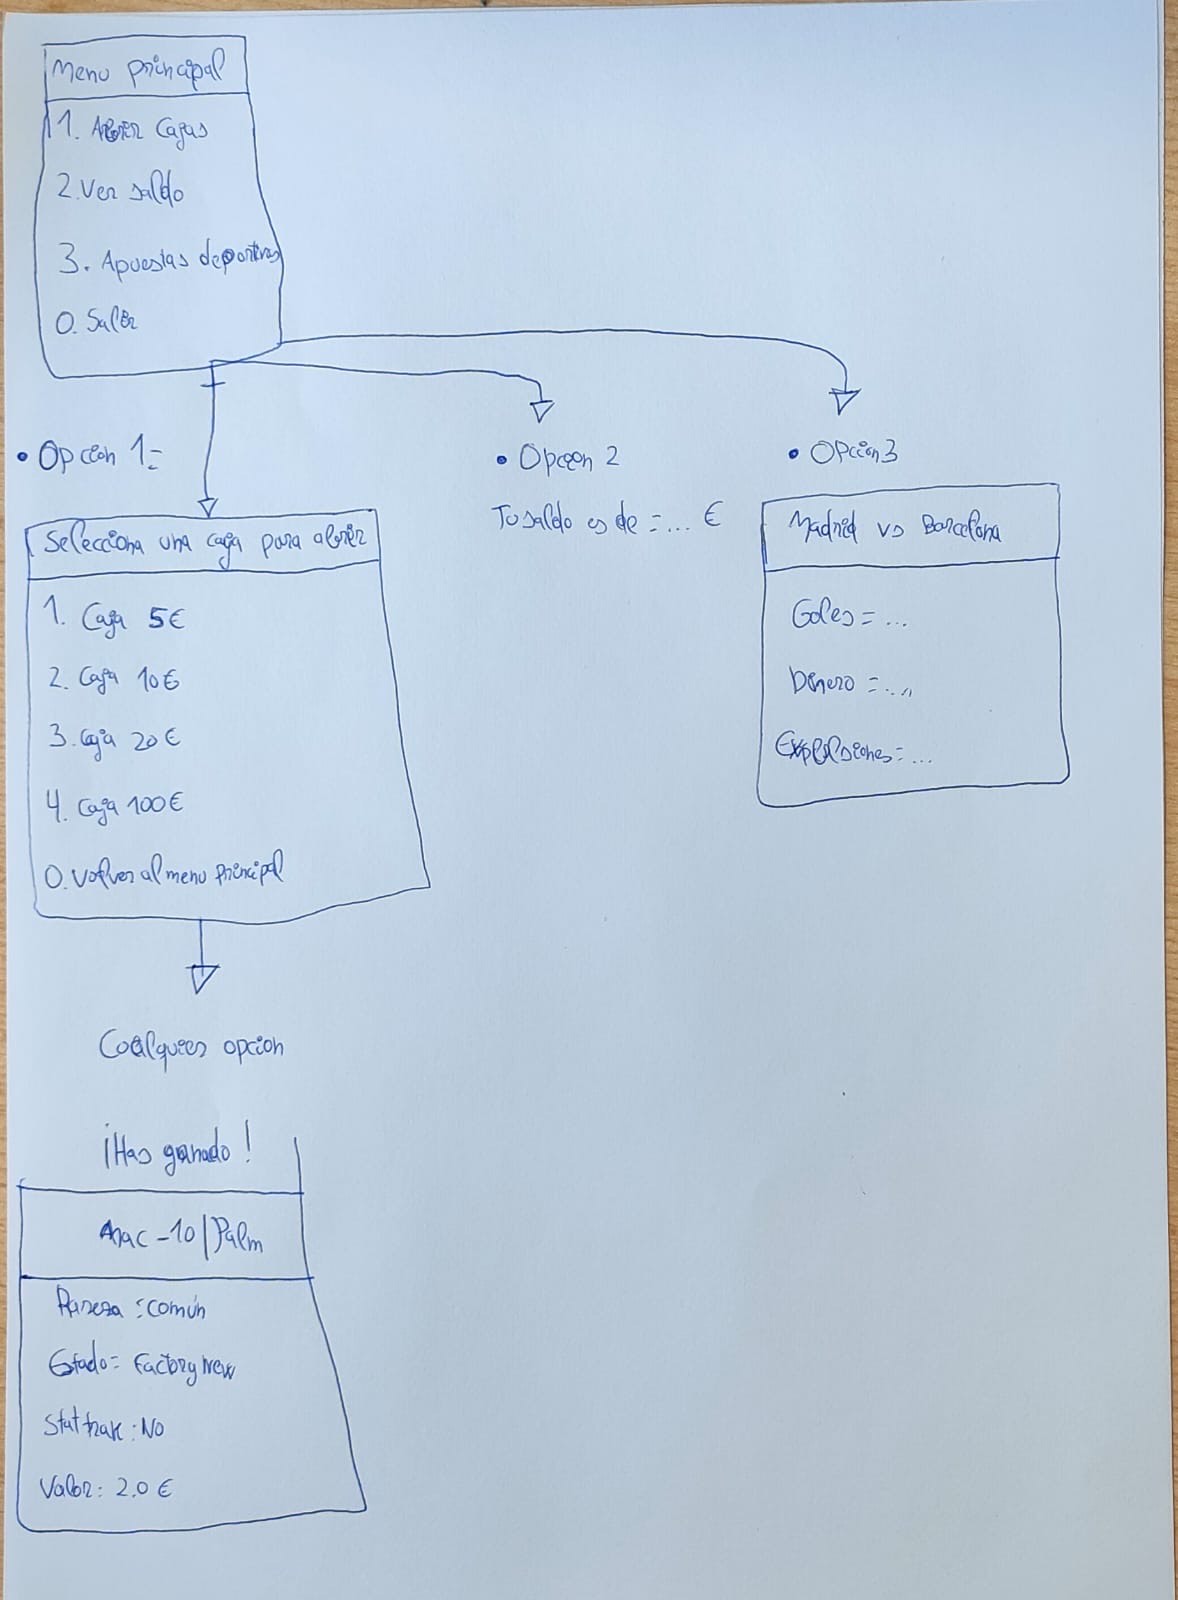 Menu principal
1. Abrir Cajas
2. Ver saldo
3. Apuestas deportivas
0. Salir
• Opcion 1=
Selecciona una caja para abrir
1. Caja 5€
2. Caja 10€
3. Caja 20€
4. Caja 100€
0. Volver al menu principal
Coalquier opcion
¡Has ganado!
Mac-10 | Palm
Rareza: común
Estado= Factory new
Stattrak: No
Valor: 2.0 €
• Opcion 2
Tu saldo es de =... €
• Opcion 3
Madrid vs Barcelona
Goles = ...
Dinero = ...
Explulsiones = ...